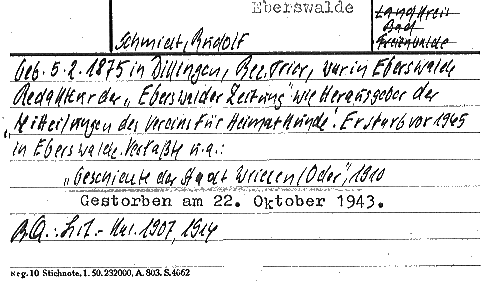 Eberswalde
Landkreis
Bad
Freienwalde
Schmidt, Rudolf
geb. 5.2.1875 in Dillingen, Bez. Trier, war in Eberswalde
Redakteur der „Eberswalder Zeitung" wie Herausgeber der
„Mitteilungen des Vereins für Heimatkunde". Er starb vor 1945
in Eberswalde. Verfaßte u.a.:
„Geschichte der Stadt Wriezen/Oder", 1910
Gestorben am 22. Oktober 1943.
BQ.: Lit.-Kal. 1907, 1914
Reg. 10 Stichnote, 1. 50. 232000, A. 803. S.4662